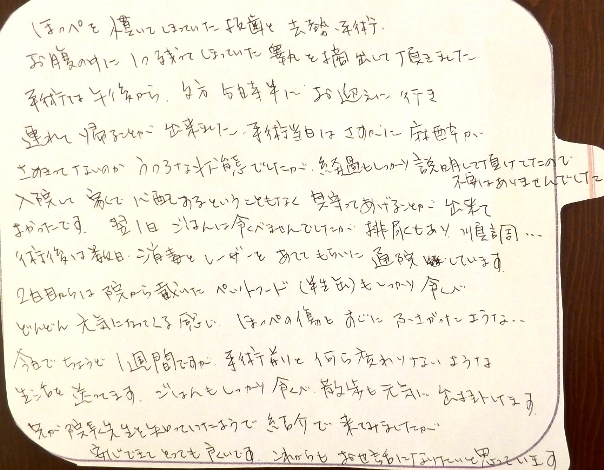 ほっぺを播いてしまっていた抜歯と去勢手術.
お腹の中に1つ残ってしまっていた睾丸を摘出して頂きました
手術は午後から、夕方5時半にお迎えに行き
連れて帰ることが出来ました. 手術当日はさすがに麻酔が
さめきってないのかうつろな状態でしたが、経過もしっかり説明して頂けてたので
不安はありませんでした
入院して家で心配するということもなく見守ってあげることが出来て
よかったです. 翌1日ごはんは食べませんでしたが排尿もあり順調…
術後は数日、消毒とレーザーをあててもらいに通院しています.
2日目からは院から戴いたペットフード(半生缶)もしっかり食べ
どんどん元気になってくる感じ、ほっぺの傷もすぐにふさがったような…
今日でちょうど1週間ですが、手術前と何ら変わりないような
生活を送ってます. ごはんもしっかり食べ、散歩も元気に出来ます
兄が院長先生を知っていたようで紹介で来てみましたが
安心できてとても良いです. これからもお世話になりたいと思っています